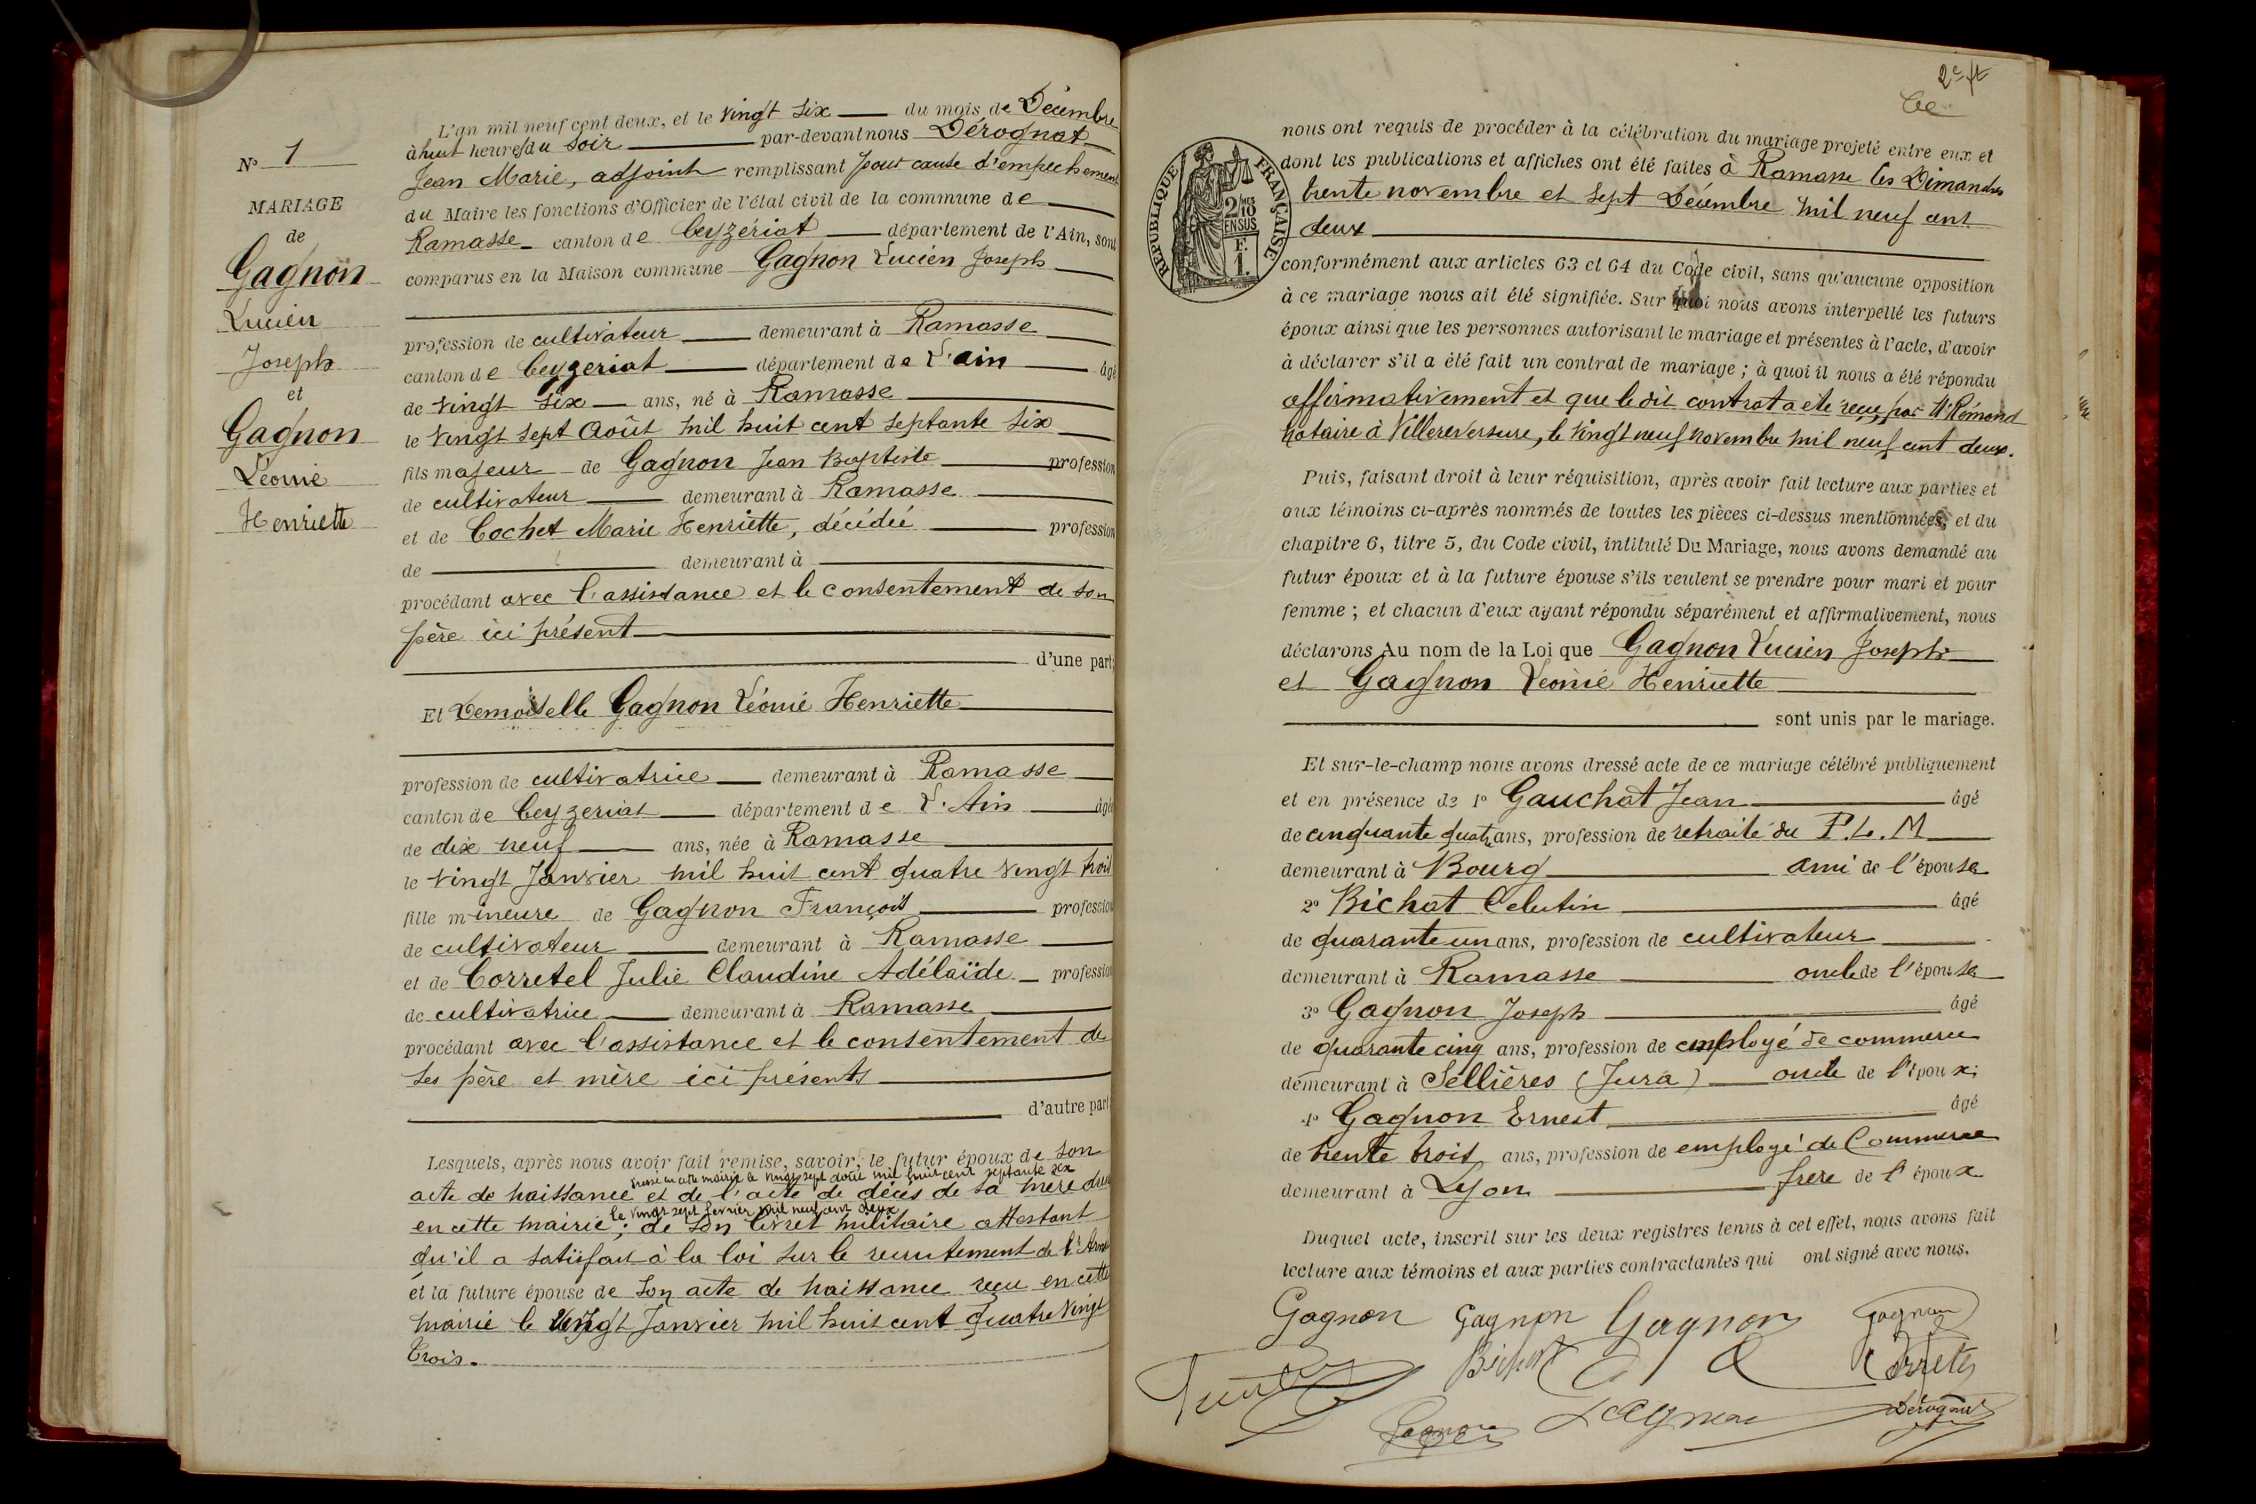 N° 1
MARIAGE
de
Gagnon
Lucien
Joseph
et
Gagnon
Léonie
Henriette
L'an mil neuf cent deux, et le vingt six du mois de Décembre
à huit heures du soir par-devant nous Dérognat
Jean Marie, adjoint remplissant pour cause d'empechement
du Maire les fonctions d'Officier de l'état civil de la commune de
Ramasse canton de Ceyzériat département de l'Ain, sont
comparus en la Maison commune Gagnon Lucien Joseph
profession de cultivateur demeurant à Ramasse
canton de Ceyzeriat département de L'ain âgé
de vingt six ans, né à Ramasse
le vingt sept Août mil huit cent septante six
fils majeur de Gagnon Jean Baptiste profession
de cultivateur demeurant à Ramasse
et de Cochet Marie Henriette, décédée profession
de demeurant à
procédant avec l'assistance et le consentement de son
père ici présent
d'une part;
Et Demoiselle Gagnon Léonie Henriette
profession de cultivatrice demeurant à Ramasse
canton de Ceyzeriat département de L'Ain âgée
de dix neuf ans, née à Ramasse
le vingt Janvier mil huit cent quatre vingt trois
fille mineure de Gagnon François profession
de cultivateur demeurant à Ramasse
et de Corretel Julie Claudine Adélaïde profession
de cultivatrice demeurant à Ramasse
procédant avec l'assistance et le consentement de
ses père et mère ici présents
d'autre part
Lesquels, après nous avoir fait remise, savoir: le futur époux de son
dressé en cette mairie le vingt sept août mil huit cent septante six
acte de naissance et de l'acte de décès de sa mère
le vingt sept fevrier mil neuf cent deux
en cette mairie; de son livret militaire attestant
qu'il a satisfait à la loi sur le recrutement de l'
et la future épouse de son acte de naissance reçu en cette
mairie le vingt Janvier mil huit cent quatre vingt
trois.
2e ft
Ce
RÉPUBLIQUE FRANÇAISE
2/10 MES
EN SUS
F.
1.
nous ont requis de procéder à la célébration du mariage projeté entre eux et
dont les publications et affiches ont été faites à Ramasse les Dimanches
trente novembre et sept Décembre mil neuf cent
deux
conformément aux articles 63 et 64 du Code civil, sans qu'aucune opposition
à ce mariage nous ait été signifiée. Sur quoi nous avons interpellé les futurs
époux ainsi que les personnes autorisant le mariage et présentes à l'acte, d'avoir
à déclarer s'il a été fait un contrat de mariage; à quoi il nous a été répondu
affirmativement et que le dit contrat a été reçu par Me Rémond
notaire à Villereversure, le vingt neuf novembre mil neuf cent deux.
Puis, faisant droit à leur réquisition, après avoir fait lecture aux parties et
aux témoins ci-après nommés de toutes les pièces ci-dessus mentionnées, et du
chapitre 6, titre 5, du Code civil, intitulé Du Mariage, nous avons demandé au
futur époux et à la future épouse s'ils veulent se prendre pour mari et pour
femme; et chacun d'eux ayant répondu séparément et affirmativement, nous
déclarons Au nom de la Loi que Gagnon Lucien Joseph
et Gagnon Léonie Henriette
sont unis par le mariage.
Et sur-le-champ nous avons dressé acte de ce mariage célébré publiquement
et en présence de 1° Gauchat Jean âgé
de cinquante quatre ans, profession de retraité du P.L.M
demeurant à Bourg ami de l'épouse
2° Bichat Celestin âgé
de quarante un ans, profession de cultivateur
demeurant à Ramasse oncle de l'épouse
3° Gagnon Joseph âgé
de quarante cinq ans, profession de employé de commerce
demeurant à Sellières (Jura) oncle de l'époux;
4° Gagnon Ernest âgé
de trente trois ans, profession de employé de Commerce
demeurant à Lyon frere de l'époux
Duquel acte, inscrit sur les deux registres tenus à cet effet, nous avons fait
lecture aux témoins et aux parties contractantes qui ont signé avec nous.
Gagnon Gagnon Gagnon Gagnon
Bichat
Gagnon Gagnon Dérognat